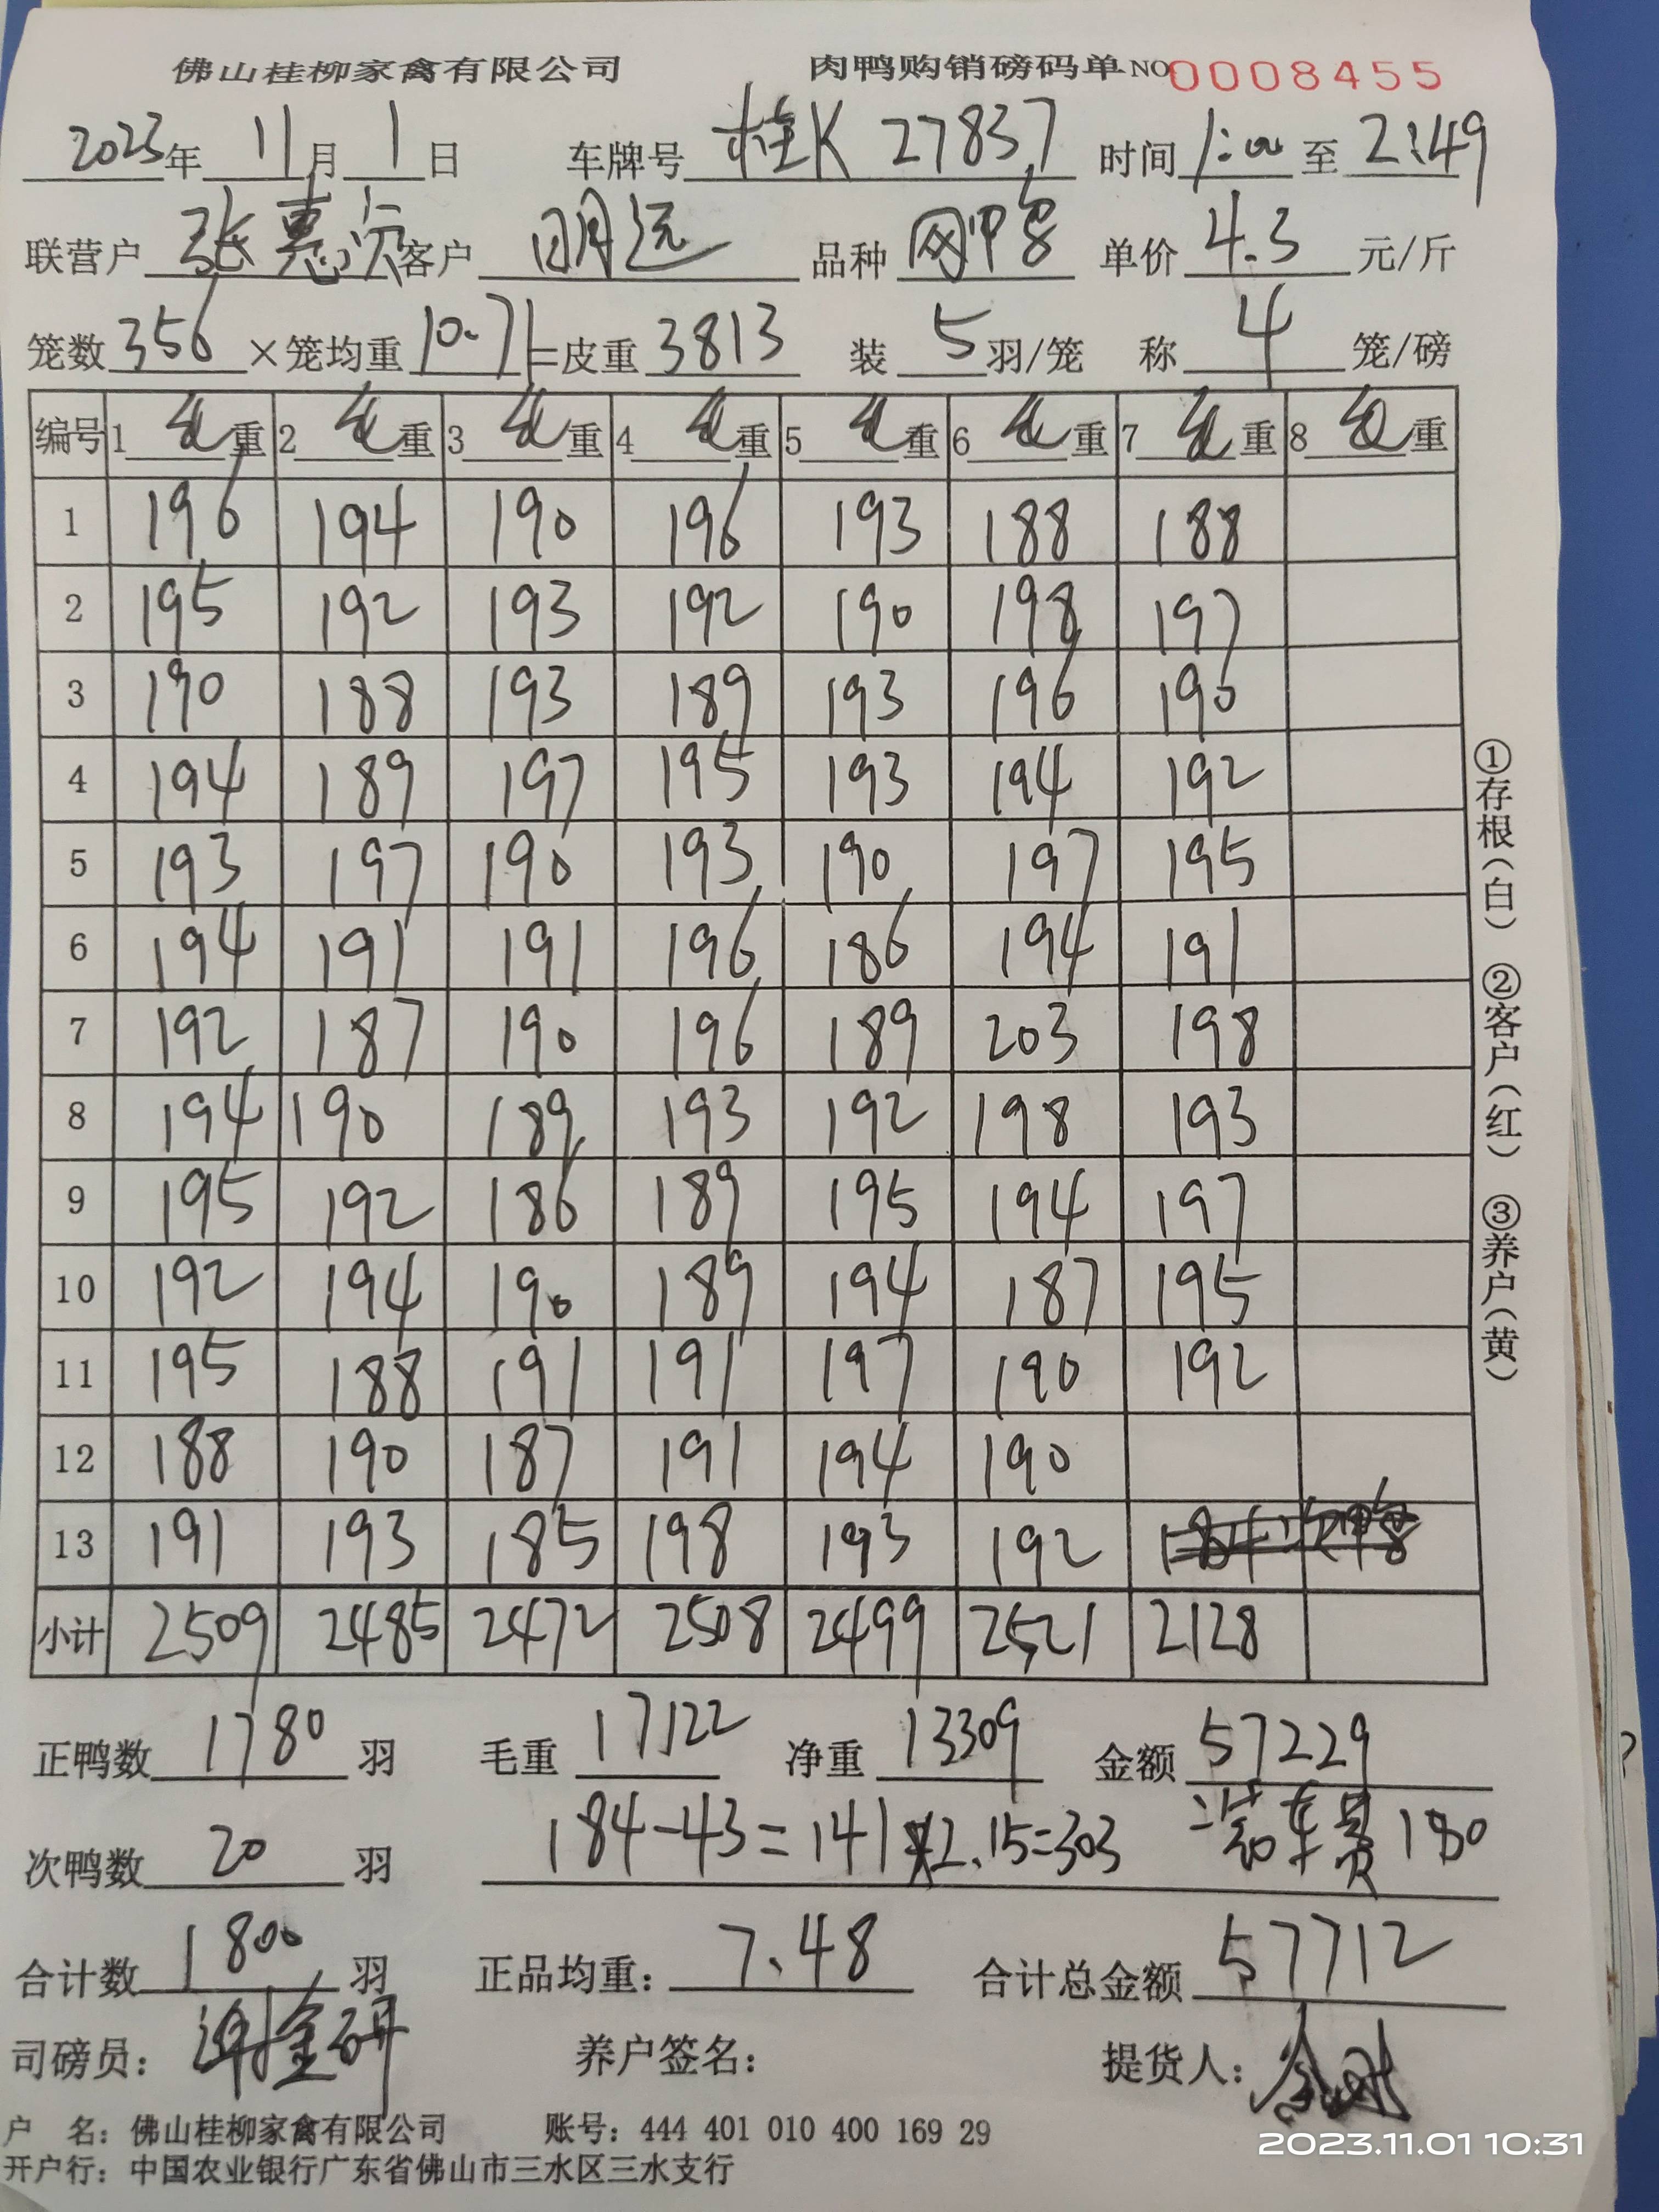 佛山桂柳家禽有限公司 肉鸭购销磅码单 NO 0008455
2023年 11月 1日 车牌号 桂K 27837 时间 1:00 至 2:49
联营户 张惠 客户 明远 品种 网鸭 单价 4.3 元/斤
笼数 356 ×笼均重 10.71 =皮重 3813 装 5 羽/笼 称 4 笼/磅
编号 1 毛重 2 毛重 3 毛重 4 毛重 5 毛重 6 毛重 7 毛重 8 毛重
1 196 194 190 196 193 188 188
2 195 192 193 192 190 198 197
3 190 188 193 189 193 196 190
4 194 189 197 195 193 194 192
5 193 197 190 193 190 197 195
6 194 191 191 196 186 194 191
7 192 187 190 196 189 203 198
8 194 190 189 193 192 198 193
9 195 192 186 189 195 194 197
10 192 194 190 189 194 187 195
11 195 188 191 191 197 190 192
12 188 190 187 191 194 190
13 191 193 185 198 193 192
小计 2509 2485 2472 2508 2499 2521 2128
①存根(白) ②客户(红) ③养户(黄)
正鸭数 1780 羽 毛重 17122 净重 13309 金额 57229
次鸭数 20 羽 184-43=141×2.15=303 装车费 180
合计数 1800 羽 正品均重: 7.48 合计总金额 57712
司磅员: 谢金研 养户签名: 提货人:
户 名: 佛山桂柳家禽有限公司 账号: 444 401 010 400 169 29
开户行: 中国农业银行广东省佛山市三水区三水支行
2023.11.01 10:31